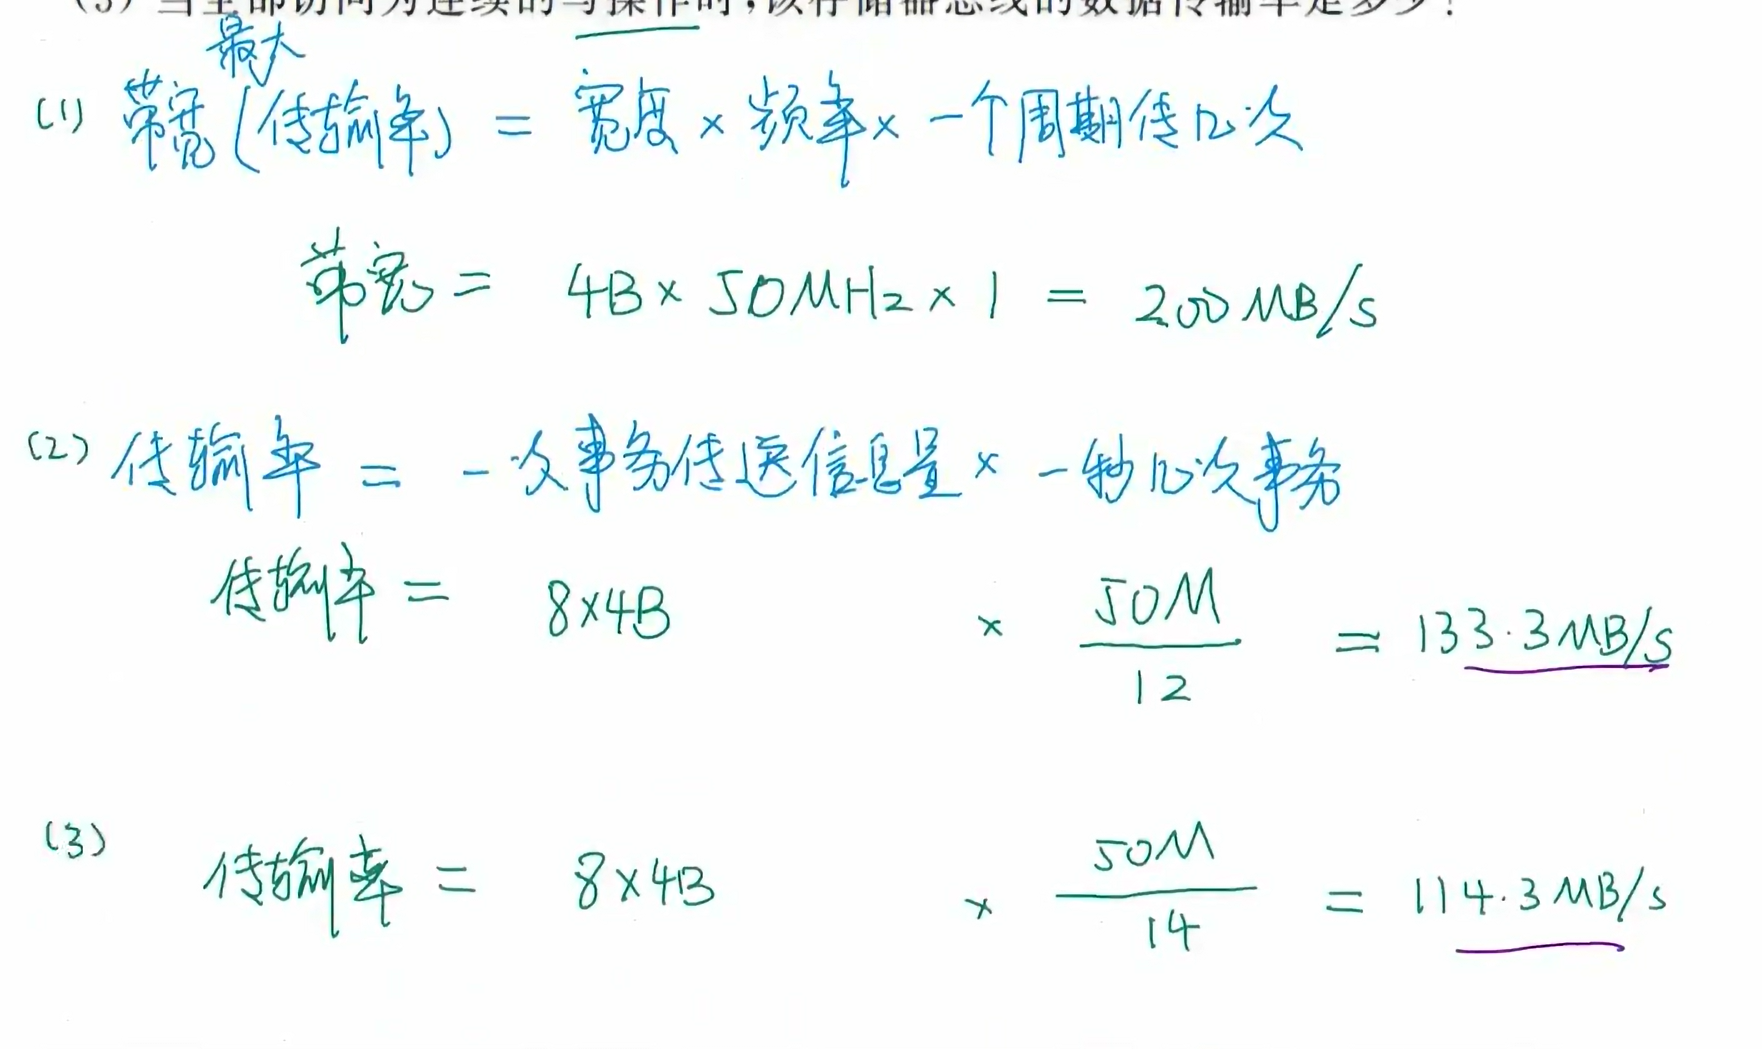 (3) 当全部访问为连续的写操作时,该存储器总线的数据传输率是多少?
最大
(1) 带宽(传输率) = 宽度 × 频率 × 一个周期传几次
带宽 = 4B × 50MHz × 1 = 200MB/s
(2) 传输率 = 一次事务传送信息量 × 一秒几次事务
传输率 = 8×4B × 50M/12 = 133.3MB/s
(3) 传输率 = 8×4B × 50M/14 = 114.3MB/s